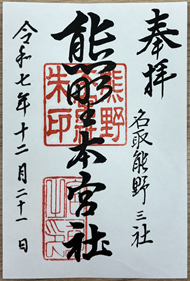 奉拝
名取熊野三社
熊野本宮社
令和七年十二月二十一日
熊野
朱印